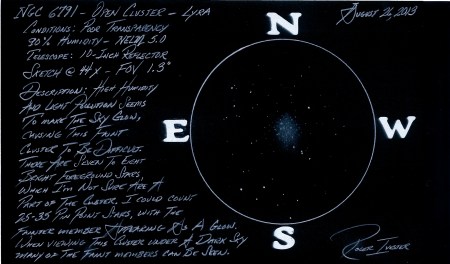 NGC 6791 - Open Cluster - Lyra
Conditions: Poor Transparency
90% Humidity - NELM 5.0
Telescope: 10-Inch Reflector
Sketch @ 44x - FOV 1.3°
Description: High Humidity
And Light Pollution Seems
To make The Sky Glow,
Causing This Faint
Cluster To Be Difficult.
There Are Seven To Eight
Bright Foreground Stars,
Which I'm Not Sure Are A
Part Of The Cluster. I could count
25-35 Pin Point Stars, with The
Fainter member Appearing As A Glow.
When viewing This Cluster under A Dark Sky
many of The Faint members can Be Seen.
August 26, 2013
N
E
W
S
Roger Ivester